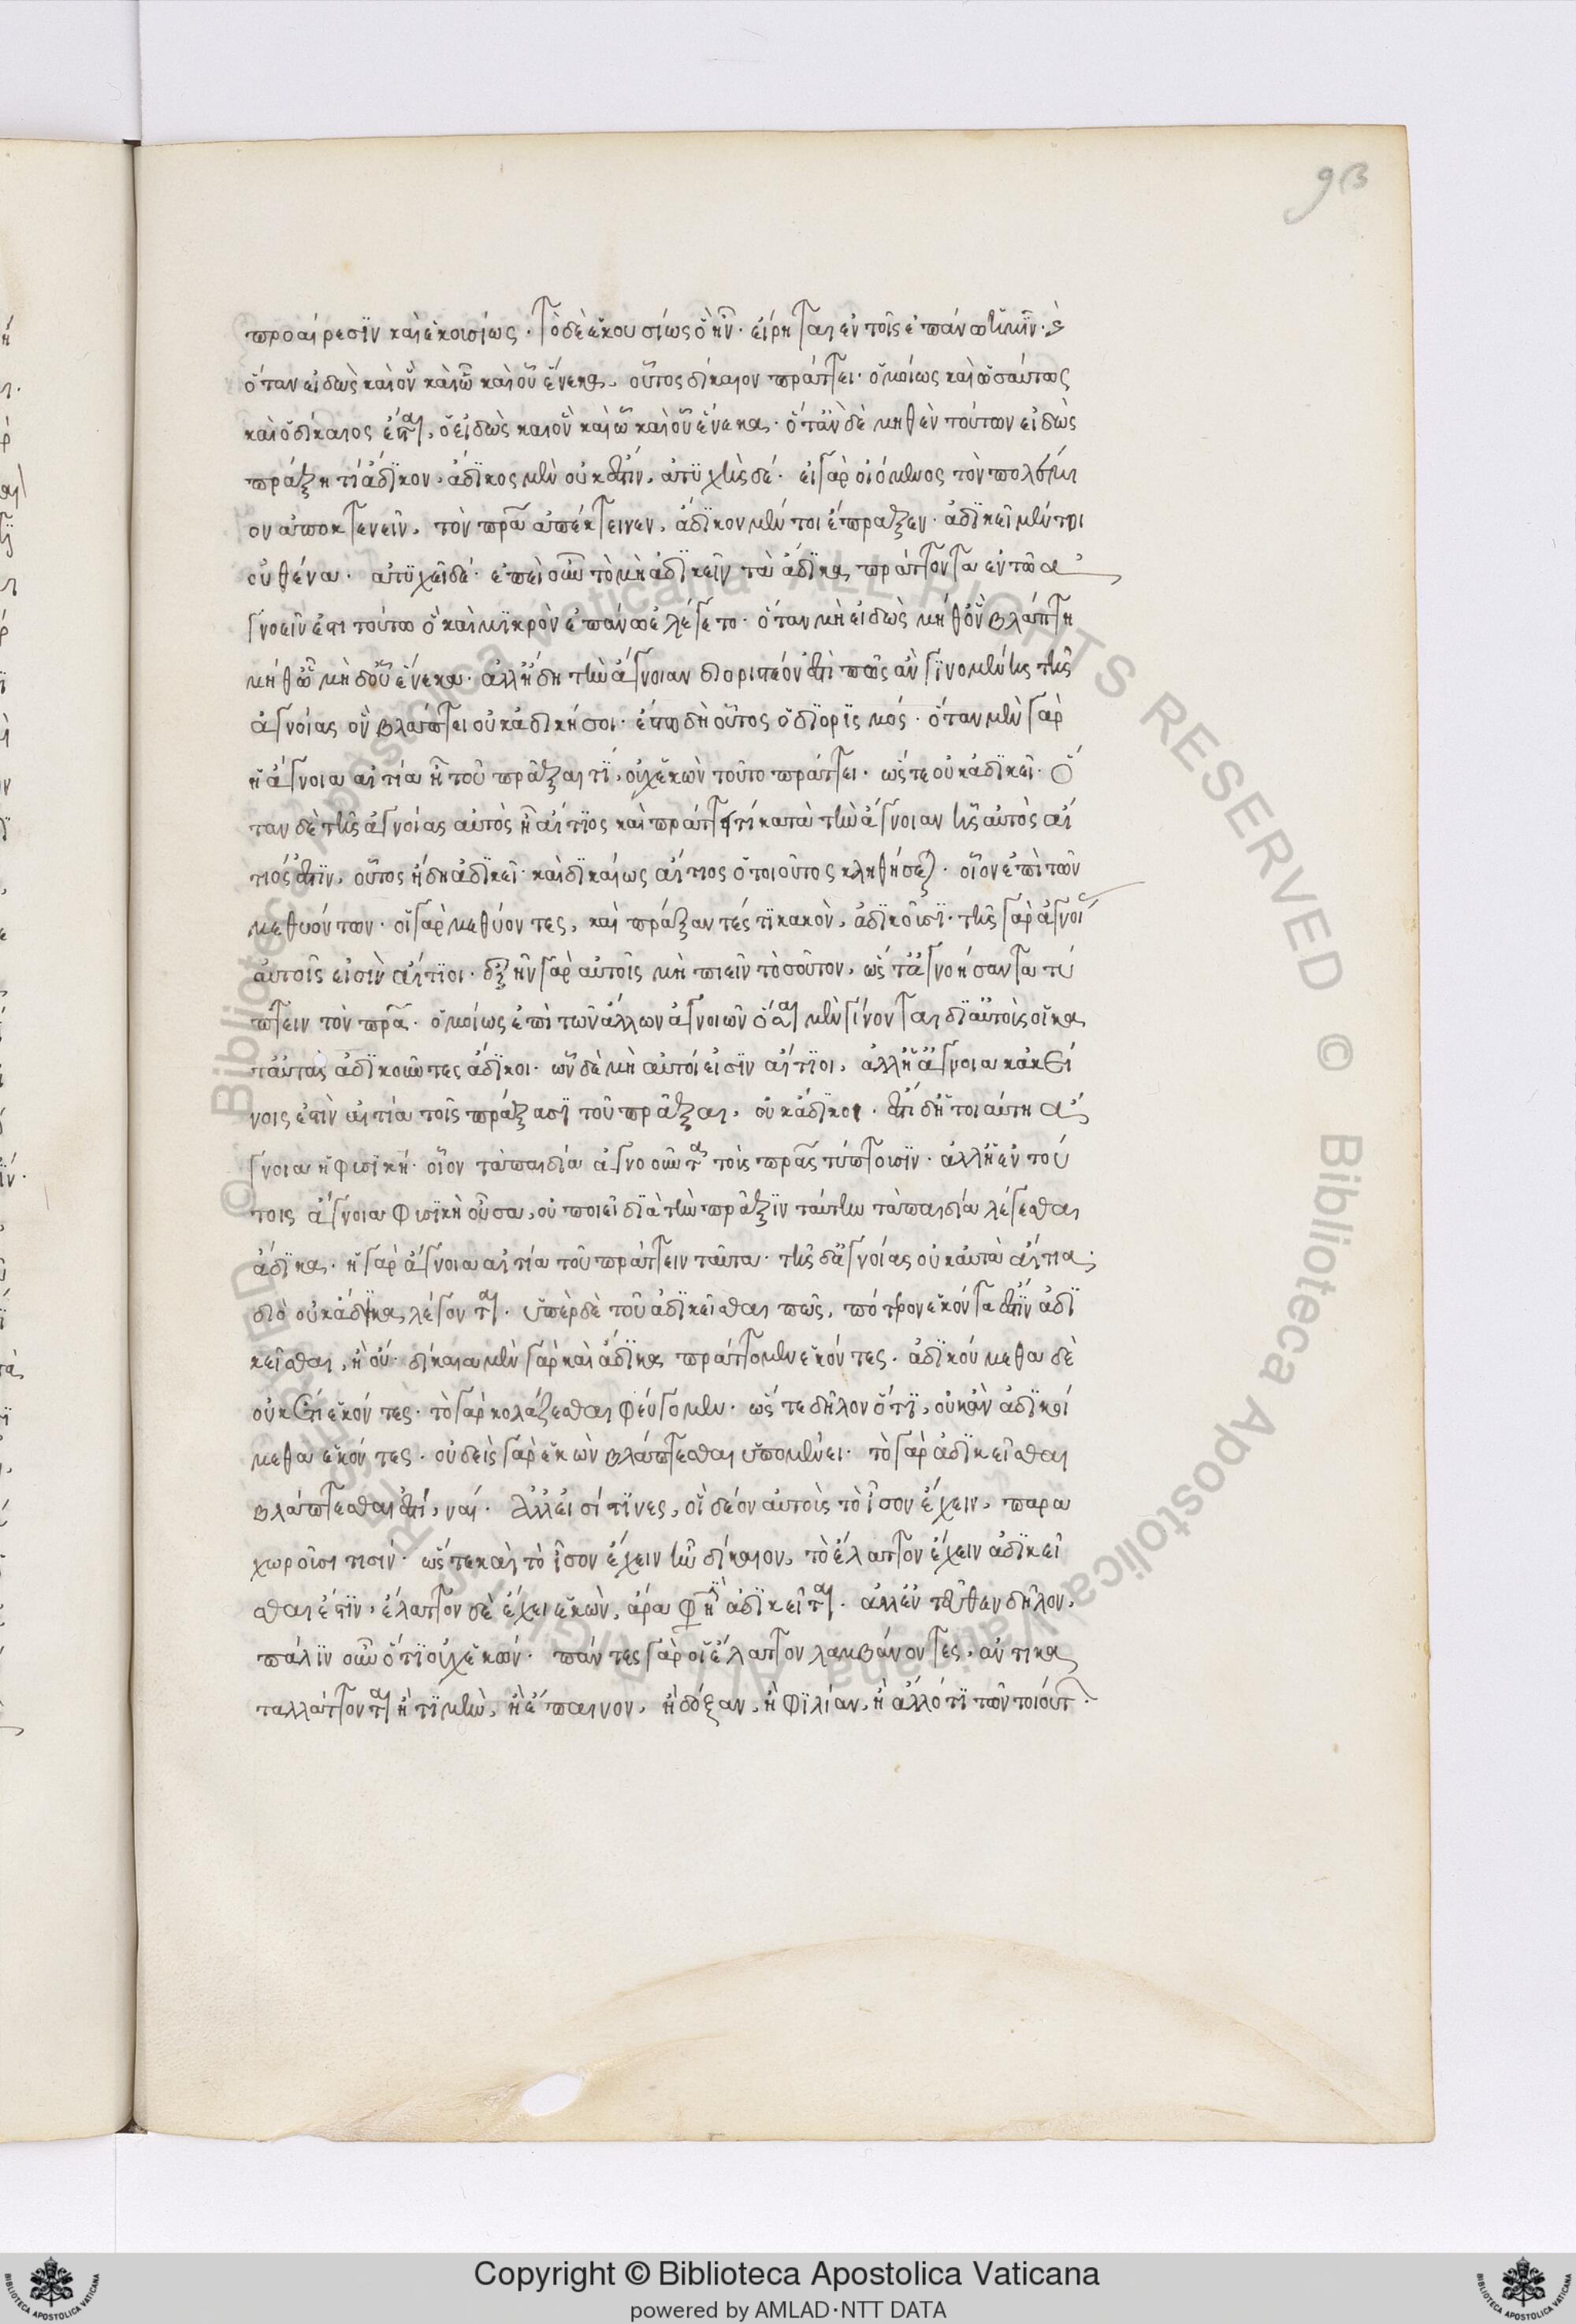 93
προαίρεσϊν καὶ ἑκουσίως· τὸ δὲ ἑκουσίως ὃ ἦν· εἴρηται ἐν τοῖς ἐπάνω ἡμῖν· καὶ
ὅταν εἰδὼς καὶ ὃν καὶ ὧ καὶ οὗ ἕνεκα, οὗτος δίκαιον πράττει· ὁμοίως καὶ ὡσαύτως
καὶ ὁ δίκαιος ἔσται, ὁ εἰδὼς καὶ ὃν καὶ ὧ καὶ οὗ ἕνεκα· ὅταν δὲ μηθὲν τούτων εἰδὼς
πράξη τί ἄδϊκον, ἄδϊκος μὲν οὐκ ἔστιν, ἀτϋχὴς δέ· εἰ γὰρ οἰόμενος τὸν πολέμι
ον ἀποκτενεῖν, τὸν πρα ἀπέκτεινεν, ἄδϊκον μέν τοι ἔπραξεν· ἀδϊκεῖ μέν τοι
οὐθένα· ἀτϋχεῖ δέ· ἐπεὶ οὖν τὸ μὴ ἀδϊκεῖν τὰ ἄδϊκα πράττοντα ἐν τῶ ἀ
γνοεῖν ἐστι τούτω ὃ καὶ μϊκρὸν ἐπάνω ἐλέγετο· ὅταν μὴ εἰδὼς μήθ' ὃν βλάπτη
μήθ' ὧ μὴδ' οὗ ἕνεκα· ἀλλ' ἤδη τὴν ἄγνοιαν διοριστέον ἐστὶ πῶς ἂν γϊνομένης τῆς
ἀγνοίας ὃν βλάπτει οὐκ ἀδικήσοι· ἔστω δὴ οὗτος ὁ δϊορϊσμός· ὅταν μὲν γὰρ
ἡ ἄγνοια αἰτία ἦ τοῦ πρᾶξαι τϊ, οὐχ ἑκὼν τοῦτο πράττει· ὥστε οὐκ ἀδϊκεῖ· ὅ
ταν δὲ τῆς ἀγνοίας αὐτὸς ἦ αἴτϊος καὶ πράττη τί κατὰ τὴν ἄγνοιαν ἧς αὐτὸς αἴ
τιός ἐστϊν, οὗτος ἤδη ἀδϊκεῖ· καὶ δϊκαίως αἴτιος ὁ τοιοῦτος κληθήσεται· οἷον ἐπὶ τῶν
μεθυόντων· οἱ γὰρ μεθύοντες, καὶ πράξαντές τϊ κακὸν, ἀδϊκοῦσϊ· τῆς γὰρ ἀγνοί
αὐτοῖς εἰσὶν αἴτϊοι· ἐξῆν γὰρ αὐτοῖς μὴ πιεῖν τὸσοῦτον, ὥστ' ἀγνοήσαντα τύ
πτειν τὸν πρα· ὁμοίως ἐπὶ τῶν ἄλλων ἀγνοιῶν ὅσαι μὲν γίνονται δϊ' αὐτοὺς οἱ κα
τ' αὐτὰς ἀδϊκοῦντες ἄδϊκοι· ὧν δὲ μὴ αὐτοί εἰσϊν αἴτϊοι, ἀλλ' ἡ ἄγνοια κἀκεί
νοις ἐστὶν αἰτία τοῖς πράξασϊ τοῦ πρᾶξαι, οὐκ ἄδϊκοι· ἔστι δ' ἡ τοιαύτη ἄ
γνοια ἡ φυσϊκή· οἷον τὰ παιδία ἀγνοοῦντα τοὺς πρας τύπτουσϊν· ἀλλ' ἡ ἐν τού
τοις ἄγνοια φυσϊκὴ οὖσα, οὐ ποιεῖ δϊὰ τὴν πρᾶξϊν ταύτην τὰ παιδία λέγεσθαι
ἄδϊκα· ἡ γὰρ ἄγνοια αἰτία τοῦ πράττειν ταῦτα· τῆς δ' ἀγνοίας οὐκ αὐτὰ αἴτια·
διὸ οὐκ ἄδϊκα λέγονται· ὑπὲρ δὲ τοῦ ἀδϊκεῖσθαι πῶς, πότερον ἑκόντα ἔστϊν ἀδϊ
κεῖσθαι, ἢ οὔ· δίκαια μὲν γὰρ καὶ ἄδϊκα πράττομεν ἑκόντες· ἀδϊκούμεθα δὲ
οὐκέτι ἑκόντες· τὸ γὰρ κολάζεσθαι φεύγομεν· ὥστε δῆλον ὅτϊ, οὐκ ἂν ἀδϊκοί
μεθα ἑκόντες· οὐδεὶς γὰρ ἑκὼν βλάπτεσθαι ὑπομένει· τὸ γὰρ ἀδϊκεῖσθαι
βλάπτεσθαι ἐστί, ναί· ἀλλ' εἰσί τϊνες, οἳ δέον αὐτοὺς τὸ ἴσον ἔχειν, παρα
χωροῦσι τισίν· ὥστε καὶ τὸ ἴσον ἔχειν ἦν δίκαιον, τὸ ἔλαττον ἔχειν ἀδϊκεῖ
σθαι ἐστϊν, ἔλαττον δὲ ἔχει ἑκὼν, ἄρα φησὶν ἀδϊκεῖται· ἀλλ' ἐντεῦθεν δῆλον,
πάλϊν οὖν ὅτϊ οὐχ ἑκών· πάντες γὰρ οἱ ἔλαττον λαμβάνοντες, ἀντικα
ταλλάττονται ἢ τϊμὴν, ἢ ἔπαινον, ἢ δόξαν, ἢ φϊλίαν, ἢ ἄλλό τϊ τῶν τοιούτ
Copyright © Biblioteca Apostolica Vaticana
powered by AMLAD·NTT DATA